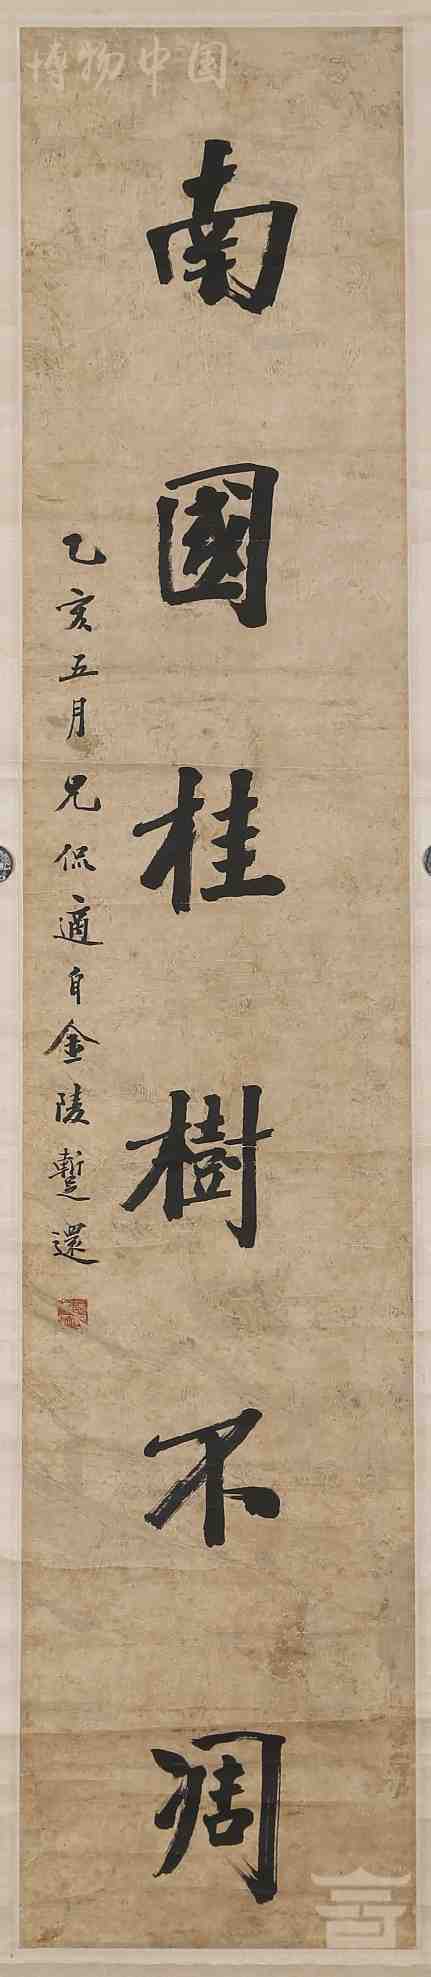 博物中国
南國桂樹不凋
乙亥五月兄侃適自金陵暫還